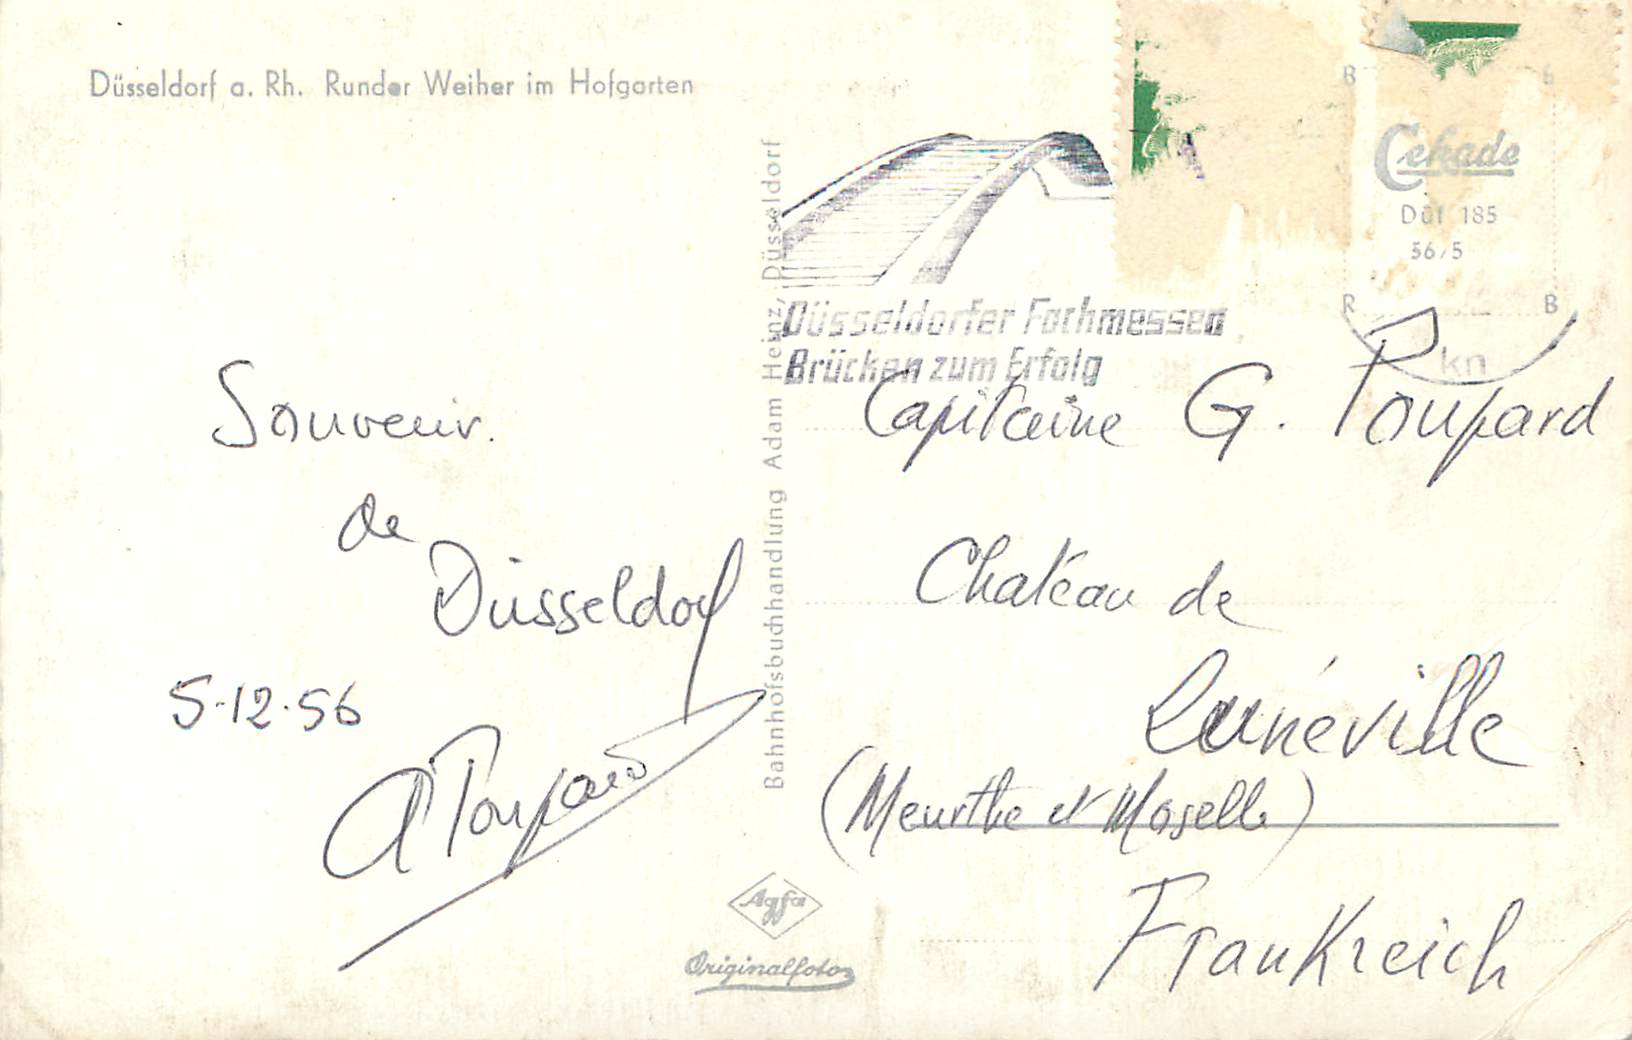 Düsseldorf a. Rh. Runder Weiher im Hofgarten
Bahnhofsbuchhandlung Adam Heinz, Düsseldorf
Düsseldorfer Fachmessen
Brücken zum Erfolg
Cekade
Düf 185
56/5
R
B
kn
Souvenir.
de
Düsseldorf
5-12-56
Poupard
Capitaine G. Poupard
Chateau de
Lunéville
(Meurthe et Moselle)
Frankreich
Agfa
Originalfoto